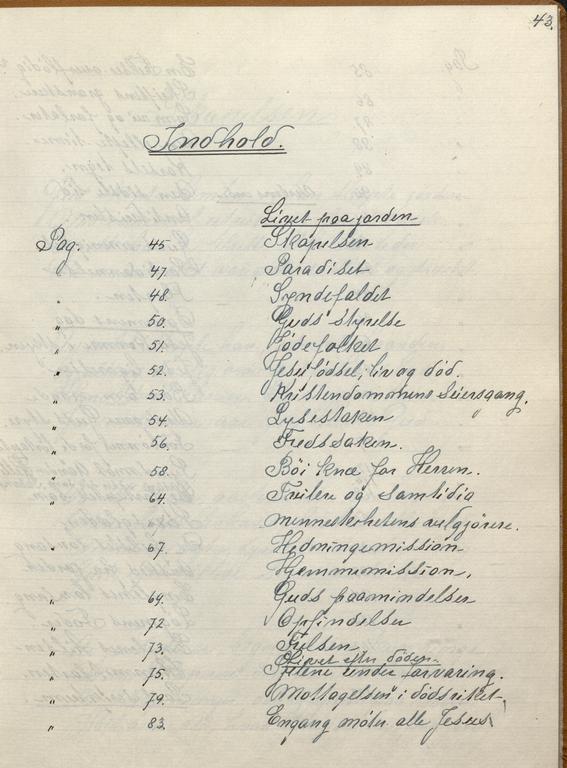 43.
Indhold.
Livet paa jorden
Pag. 45 Skapelsen
" 47. Paradiset
" 48. Syndefaldet
" 50. Guds styrelse
" 51. Jödefolket
" 52. Jesu födsel, liv og död.
" 53. Kristendommens Seiersgang.
" 54. Lysestaken
" 56. Fredssaken.
" 58. Böi knæ for Herren.
" 64. Frelere og samtidig
menneskehetens velgjörere.
" 67. Hedningemission
Hjemmemission,
" 69. Guds paamindelser
" 72. Opfindelser
" 73. Frelsen,
Livet efter döden.
" 75. under forvaring.
" 79. Mottagelsen i dödsriket.
" 83. Engang möter alle Jesus